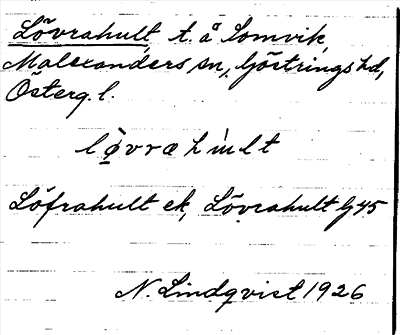 Lövrahult t. å Somvik,
Malexanders sn, Göstrings hd,
Österg. l.
lø̀vrahu̇lt
Löfrahult ek, Lövrahult G45
N. Lindqvist 1926